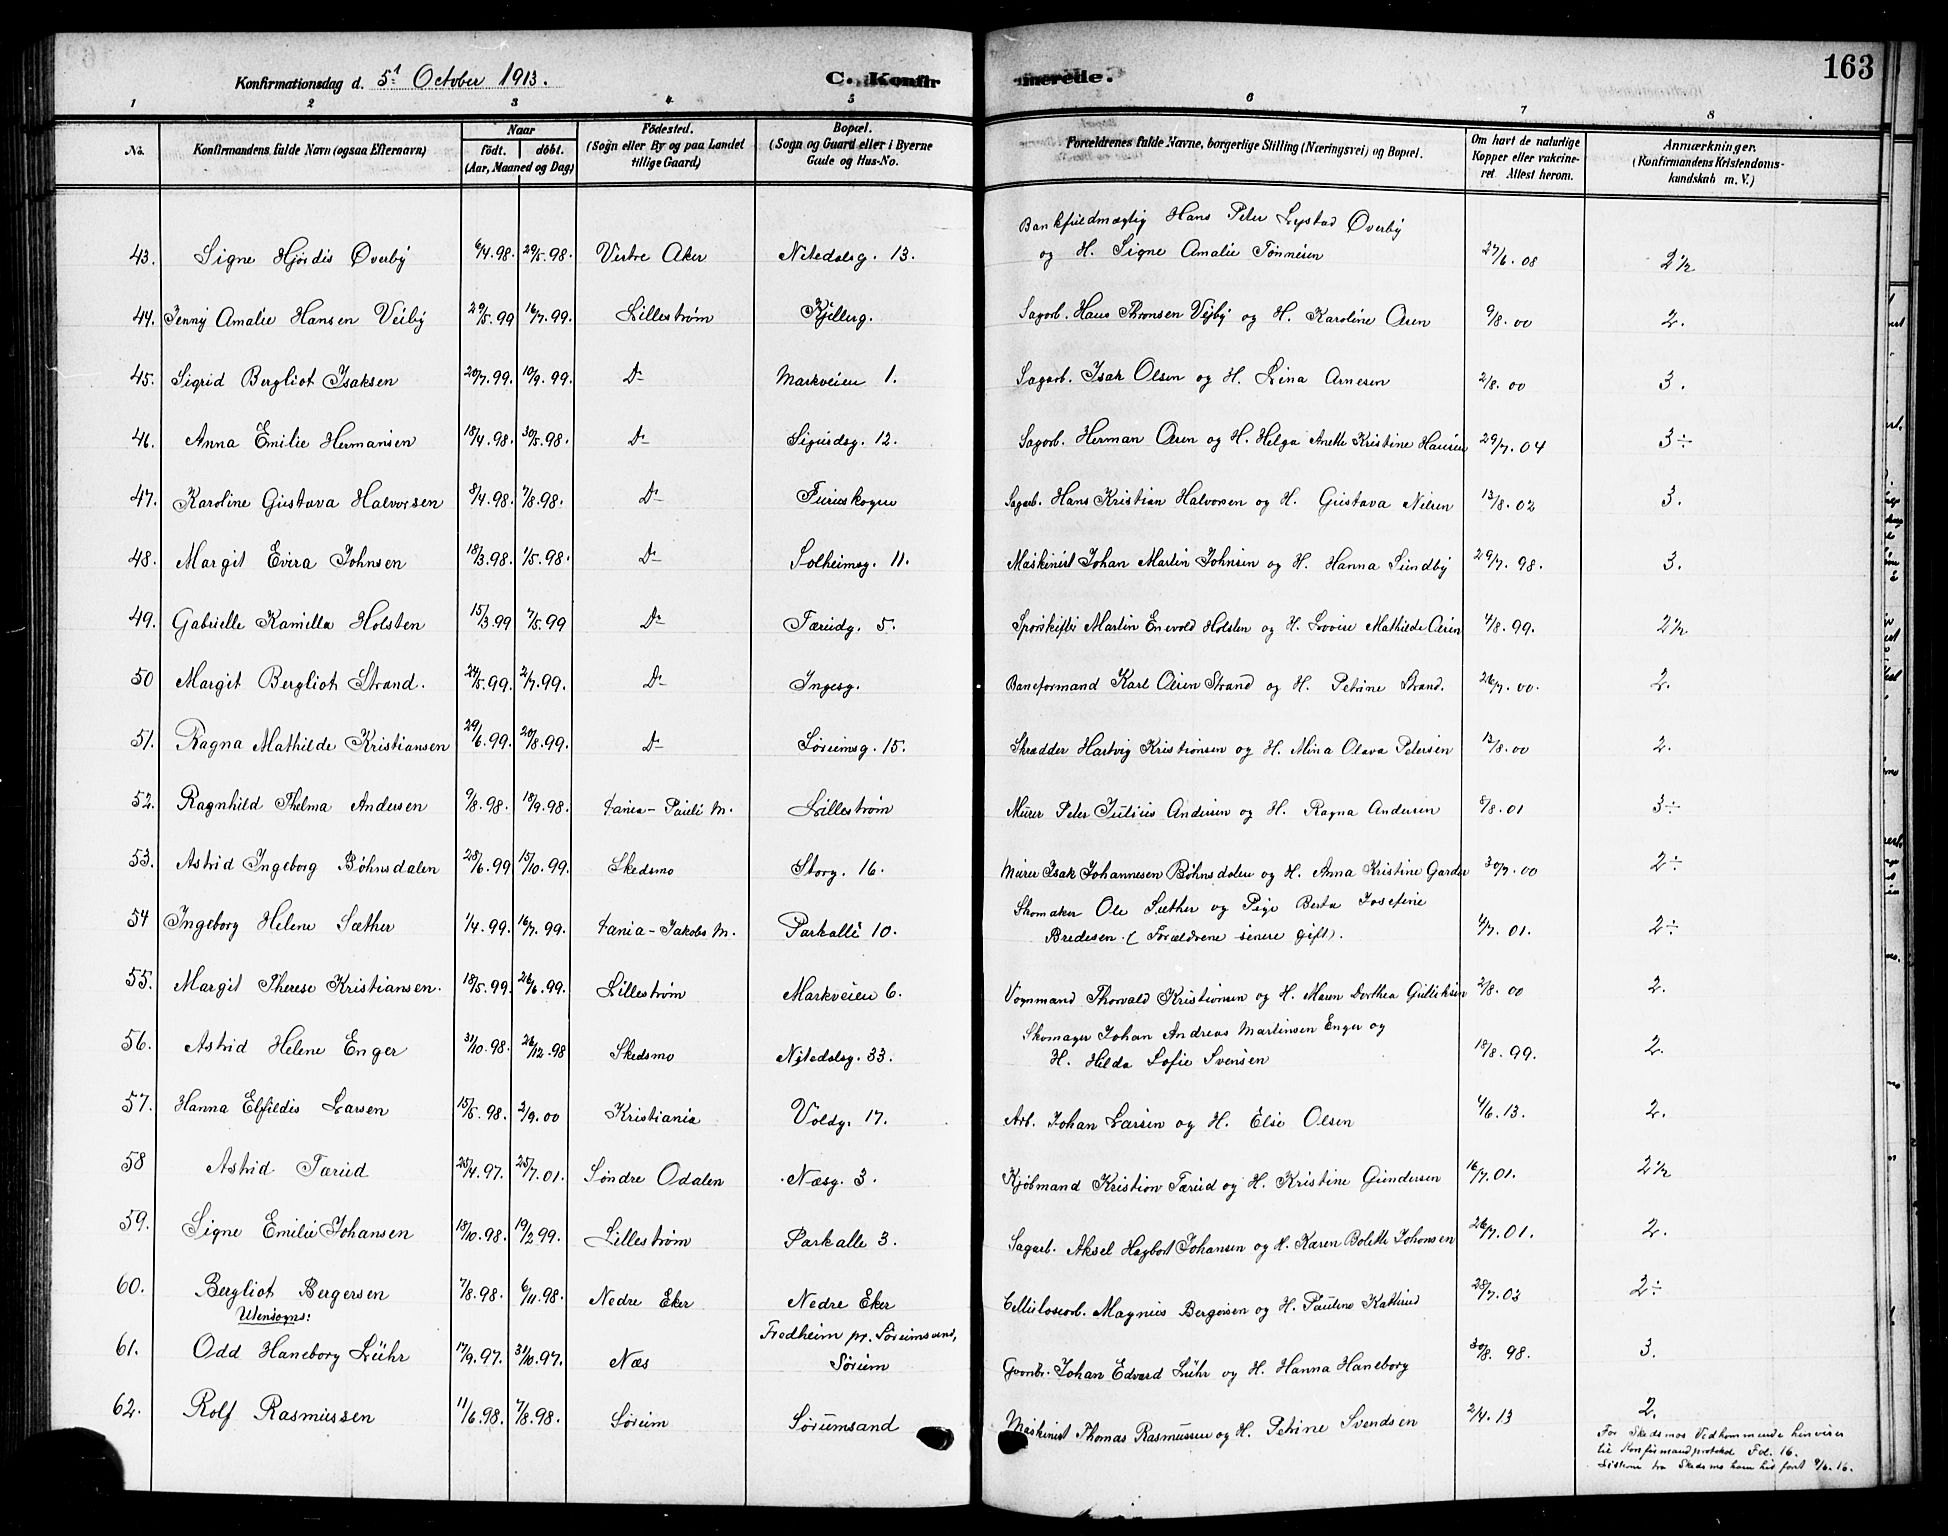 163
Konfirmationsdag d. 5t October 1913.
C. Konfir merede.
1 2 3 4 5 6 7 8
No. Konfirmandens fulde Navn (ogsaa Efternavn) Naar født. døbt. (Aar, Maaned og Dag) Fødested. (Sogn eller By og paa Landet tillige Gaard) Bopæl. (Sogn og Gaard eller i Byerne Gade og Hus-No. Forældrenes fulde Navne, borgerlige Stilling (Næringsvei) og Bopæl. Om havt de naturlige Kopper eller vakcineret Attest herom. Anmærkninger. (Konfirmandens Kristendomskundskab m. V.)
43. Signe Hjørdis Øverby 6/4.98. 29/5.98. Vestre Aker Nitedalsg. 13. Bankfuldmægtig Hans Peter Lystad Øverby
og H. Signe Amalie Tønnesen 27/6.08 2½
44. Jenny Amalie Hansen Veiby 29/5.99 16/7.99. Lillestrøm Kjellerg. Sagarb. Hans Thronsen Vejby og H. Karoline Olsen 9/8.00 2.
45. Sigrid Bergliot Isaksen 20/7.99. 10/9.99. Do Markveien 1. Sagarb. Isak Olsen og H. Lina Arnesen 2/8.00 3.
46. Anna Emilie Hermansen 18/4.98. 30/5.98. Do Sigurdsg. 12. Sagarb. Herman Olsen og H. Helga Anette Kristine Hansen 29/7.04 3÷
47. Karoline Gustava Halvorsen 3/4.98. 7/8.98. Do Furuskogen Sagarb. Hans Kristian Halvorsen og H. Gustava Nilsen 13/8.02 3.
48. Margit Evira Johnsen 18/3.98. 1/5.98. Do Solheimsg. 11. Maskinist Johan Martin Johnsen og H. Hanna Sundby 29/7.98. 3.
49. Gabrielle Kamilla Holsten 15/3.99 7/5.99 Do Tærudg. 5. Sporskifter Martin Enevold Holsten og H. Lovise Mathilde Olsen 4/8.99. 2½
50 Margit Bergliot Strand. 24/5.99. 2/7.99. Do Ingesg. Baneformand Karl Olsen Strand og H. Petrine Strand. 26/7.00. 2.
51. Ragna Mathilde Kristiansen 29/6.99. 20/8.99. Do Sørumsg. 15. Skrædder Hartvig Kristiansen og H. Mina Olava Petersen 13/8.00 2.
52. Ragnhild Thelma Andersen 9/8.98. 18/9.98. ‡ania-Pauli M. Lillestrøm Murer Peter Julius Andersen og H. Ragna Andersen 8/8.01 3÷
53. Astrid Ingeborg Bøhnsdalen 28/6.99 15/10.99. Skedsmo Storg. 16. Murer Isak Johannesen Bøhnsdalen og H. Anna Kristine Garder 30/7.00 2÷
54 Ingeborg Helene Sæther 1/4.99. 16/7.99. ‡ania-Jakobs M. Parkalle 10. Skomaker Ole Sæther og Pige Berta Josefine
Bredesen. (Forældrene senere gift). 4/7.01. 2÷
55. Margit Therese Kristiansen. 18/5.99. 26/6.99. Lillestrøm Markveien 6. Vognmand Thorvald Kristiansen og H. Maren Dorthea Gulliksen 2/8.00 2.
56. Astrid Helene Enger 31/10.98. 26/12.98 Skedsmo Nitedalsg. 33. Skomager Johan Andreas Martinsen Enger og
H. Hilda Sofie Svensen 18/8.99. 2.
57. Hanna Elfildis Larsen 15/5.98. 2/9.00 Kristiania Voldg. 17. Arb. Johan Larsen og H. Else Olsen 4/6.13. 2.
58 Astrid Tærud 25/4.97. 25/7.01. Søndre Odalen Næsg. 3. Kjøbmand Kristian Tærud og H. Kristine Gundersen 16/7.01. 2½
59. Signe Emilie Johansen 18/10.98. 19/2.99. Lillestrøm Parkalle 3. Sagarb. Aksel Hagbart Johansen og H. Karen Bolette Johansen 26/7.01. 2.
60. Bergliot Bergersen 7/8.98. 6/11.98. Nedre Eker Nedre Eker Cellulosearb. Magnus Bergersen og H. Pauline Katterud 28/7.03 2÷
Utensogns:
61. Odd Haneborg Lühr 17/9.97. 31/10.97. Næs Fredheim pr. Sørumsand,
Sørum Gaardbr. Johan Edvard Lühr og H. Hanna Haneborg 30/8.98. 3.
62. Rolf Rasmussen 11/6.98. 7/8.98. Sørum Sørumsand Maskinist Thomas Rasmussen og H. Petrine Svendsen 2/4.13 2.
For Skedsmos Vedkommende henvises
til Konfirmandprotokol Fol. 16.
Listerne fra Skedsmo kom hid først 9/6.16.